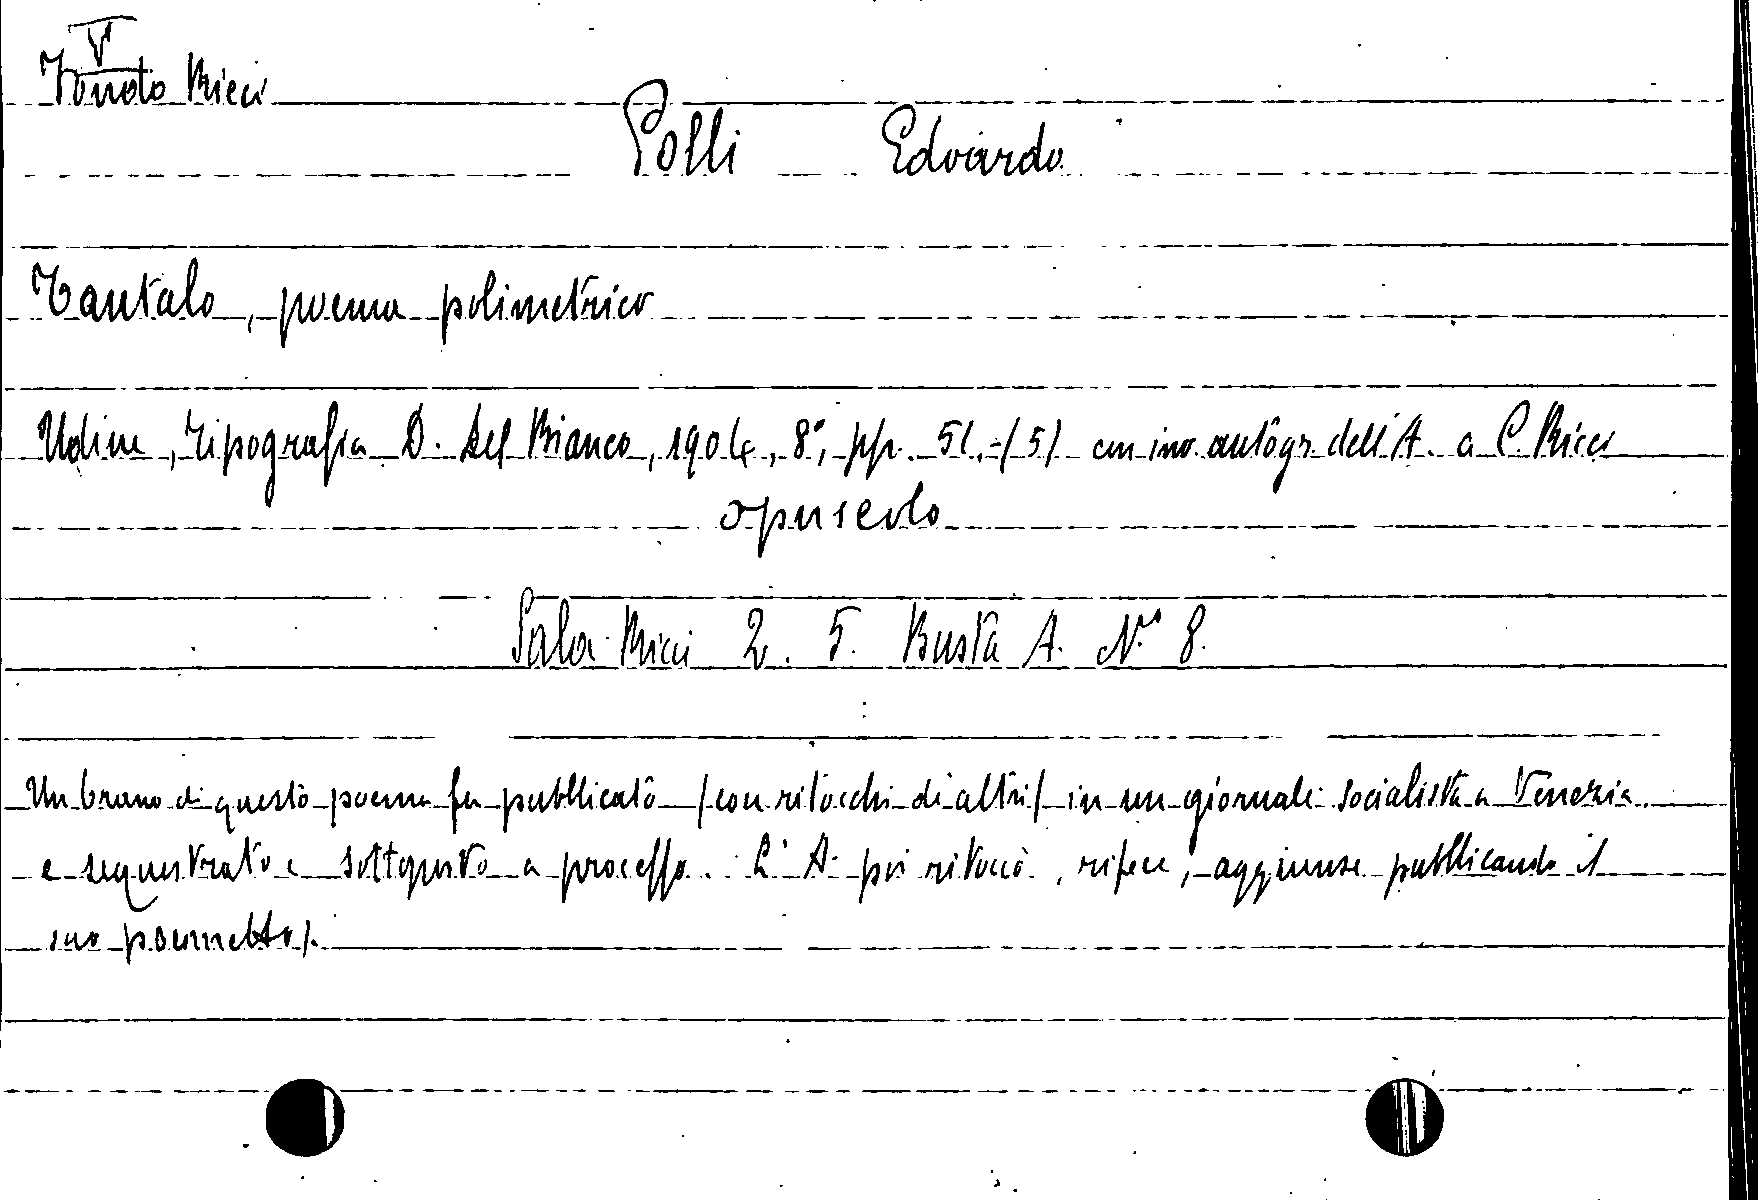 V
Fondo Ricci
Polli Edoardo
Tantalo, poema polimetrico
Udine, Tipografia D. Del Bianco, 1904, 8°, pp. 51,-(5) con inv. autogr. dell'A. a C. Ricci
opuscolo
Sala Ricci 2. 5. Busta A. N.° 8.
Un brano di questo poema fu pubblicato (con ritocchi di altri) in un giornale socialista a Venezia
e sequestrato e sottoposto a processo. L'A. poi ritoccò, rifece, aggiunse pubblicando il
suo poemetto).